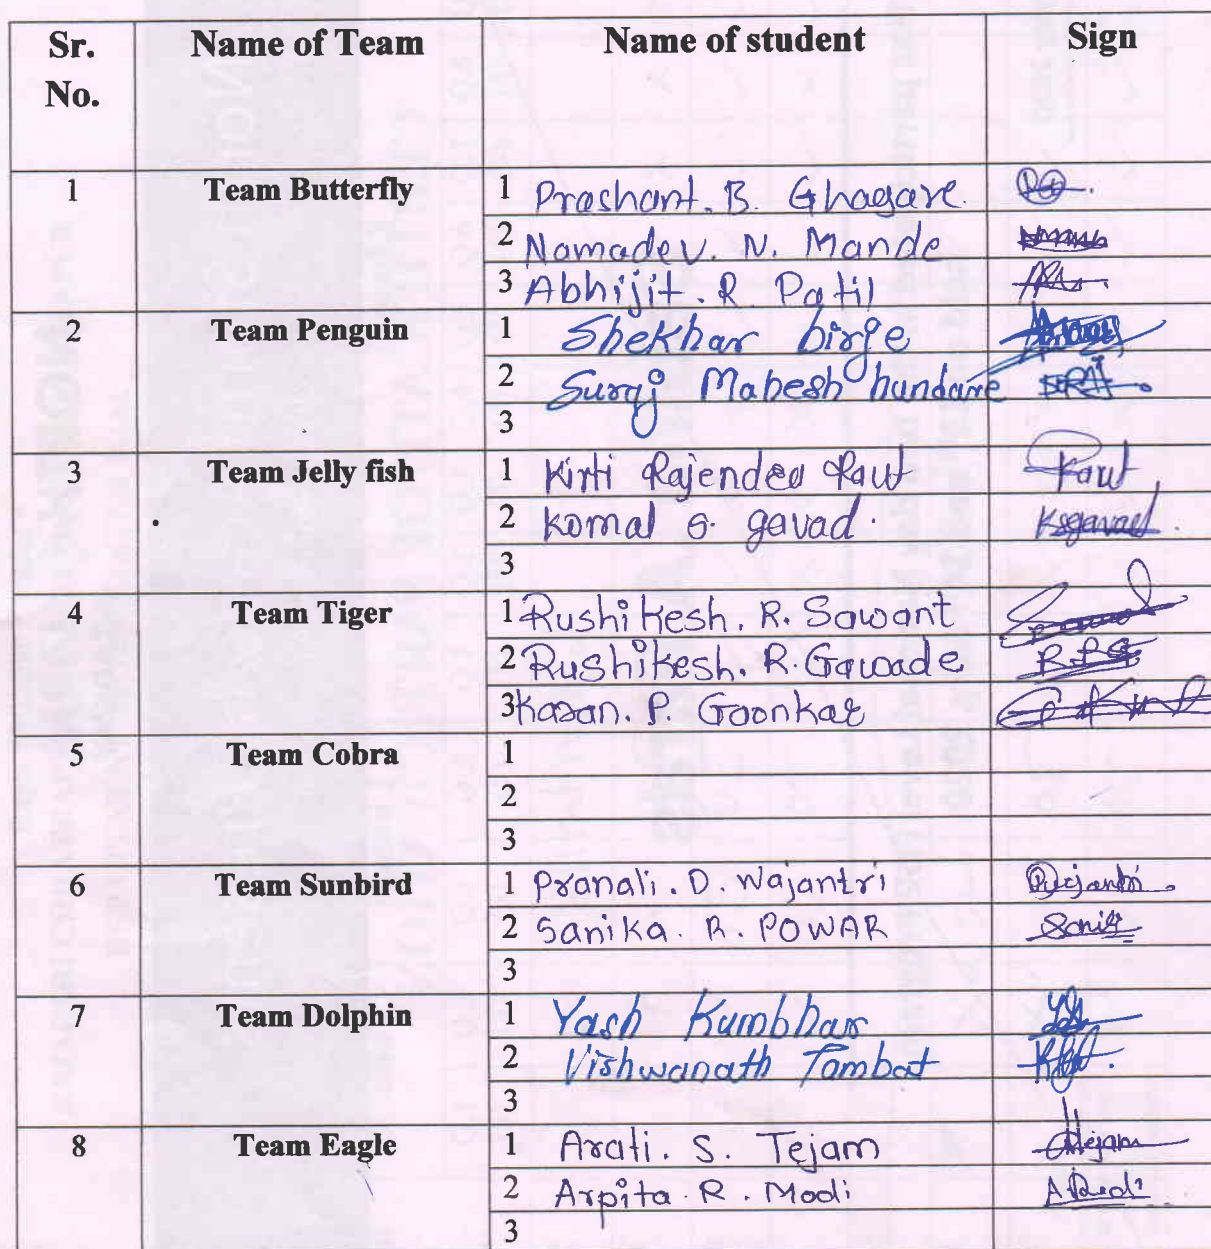 Sr. No. Name of Team Name of student Sign
1 Team Butterfly 1 Prashant. B. Ghagare.
2 Namadev. N. Mande
3 Abhijit. R. Patil
2 Team Penguin 1 Shekhar birje
2 Suraj Mahesh hundare
3
3 Team Jelly fish 1 Kirti Rajendra Raut Raut
2 Komal S. gavad. Ksgavad.
3
4 Team Tiger 1 Rushikesh. R. Sawant
2 Rushikesh. R. Gawade R.R.G
3 Karan. P. Gaonkar
5 Team Cobra 1
2
3
6 Team Sunbird 1 Pranali. D. Wajantri
2 Sanika. R. POWAR
3
7 Team Dolphin 1 Yash Kumbhar
2 Vishwanath Tambat
3
8 Team Eagle 1 Arati. S. Tejam
2 Arpita. R. Modi
3